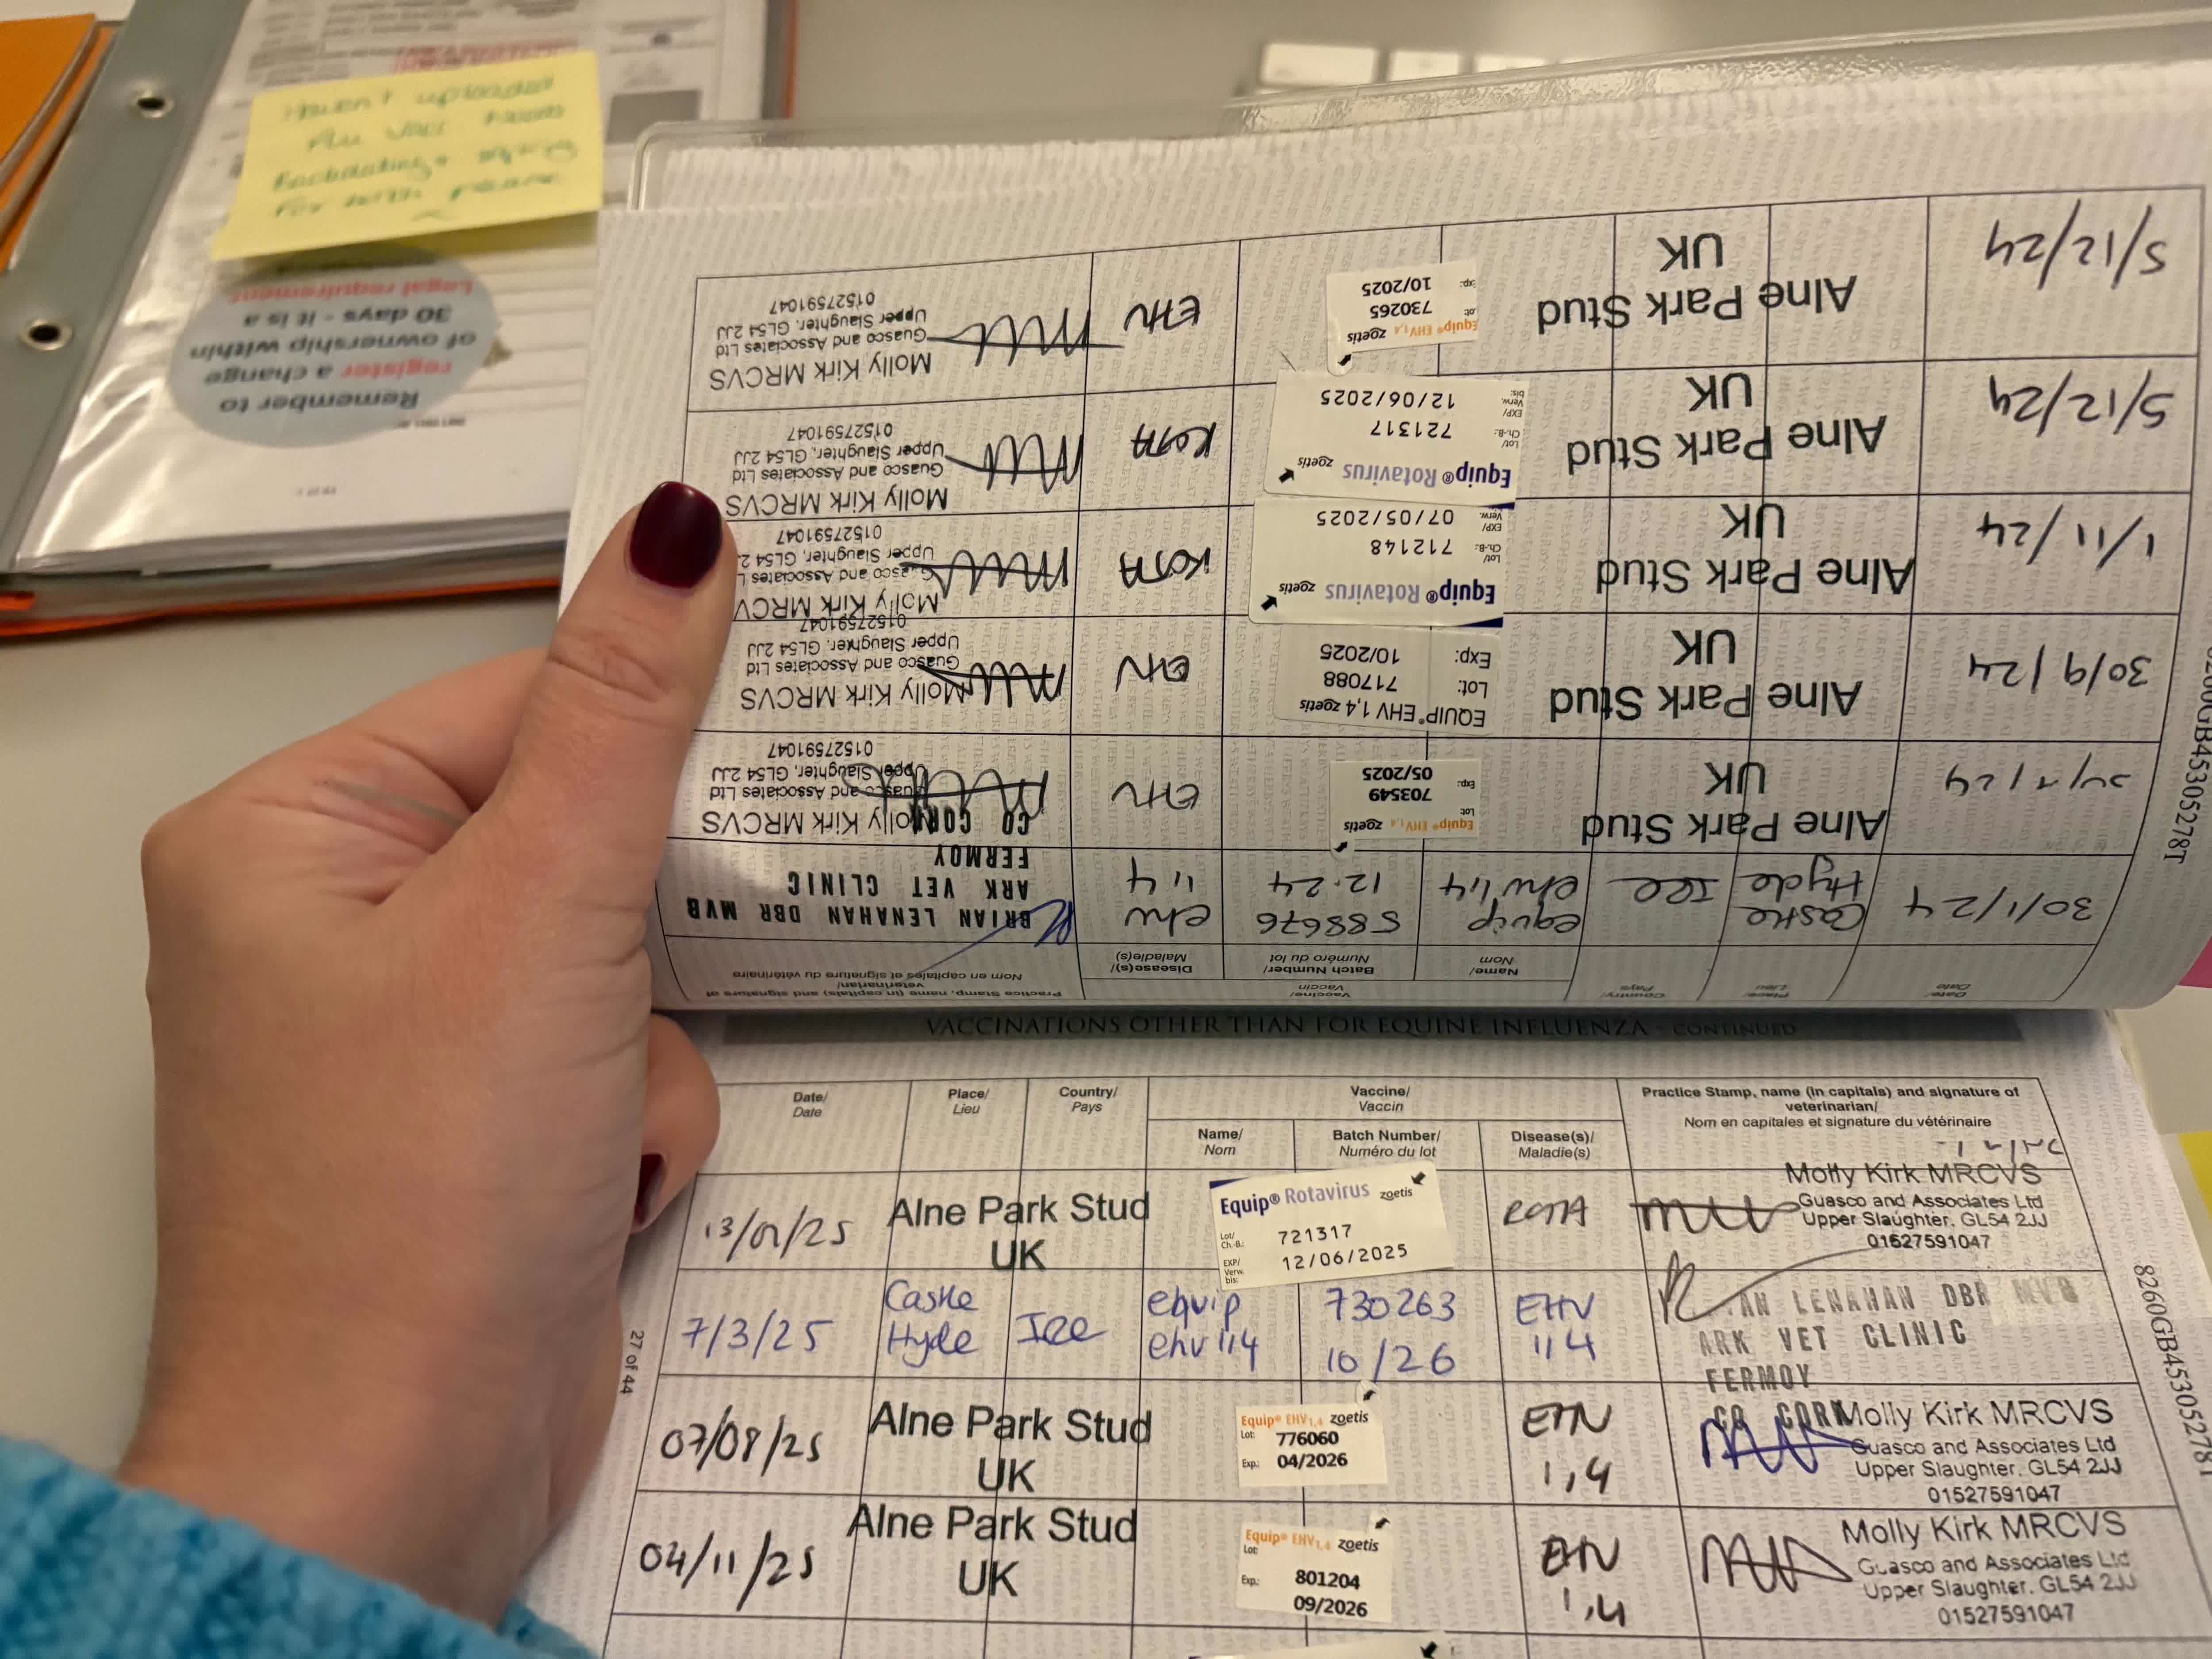 Haven't uploaded
flu vacc needs
backdating +
for
please
Remember to
register a change
of ownership within
30 days - it is a
Legal requirement
VACCINATIONS OTHER THAN FOR EQUINE INFLUENZA - CONTINUED
Date/ Place/ Country/ Vaccine/ Practice Stamp, name (in capitals) and signature of
Date Lieu Pays Vaccin veterinarian/
Name/ Batch Number/ Disease(s)/ Nom en capitales et signature du vétérinaire
Nom Numéro du lot Maladie(s)
30/1/24 Castle Ire equip 588676 ehv BRIAN LENAHAN DBR MVB
Hyde ehv 1,4 12.24 1,4 ARK VET CLINIC
FERMOY
CO CORK
Alne Park Stud Equip® EHV1,4 zoetis EHV Molly Kirk MRCVS
UK Lot: 703549 Guasco and Associates Ltd
Exp: 05/2025 Upper Slaughter, GL54 2JJ
01527591047
30/9/24 Alne Park Stud EQUIP® EHV 1,4 zoetis EHV Molly Kirk MRCVS
UK Lot: 717088 Guasco and Associates Ltd
Exp: 10/2025 Upper Slaughter, GL54 2JJ
01527591047
1/11/24 Alne Park Stud Equip® Rotavirus zoetis ROTA Molly Kirk MRCV
UK Lot/ Ch.-B.: 712148 Guasco and Associates L
EXP/ Verw. 07/05/2025 Upper Slaughter, GL54 2
01527591047
5/12/24 Alne Park Stud Equip® Rotavirus zoetis ROTA Molly Kirk MRCVS
UK Lot/ Ch.-B.: 721317 Guasco and Associates Ltd
EXP/ Verw. bis: 12/06/2025 Upper Slaughter, GL54 2JJ
01527591047
5/12/24 Alne Park Stud Equip® EHV1,4 zoetis EHV Molly Kirk MRCVS
UK Lot: 730265 Guasco and Associates Ltd
Exp: 10/2025 Upper Slaughter, GL54 2JJ
01527591047
8260GB45305278T
Date/ Place/ Country/ Vaccine/ Practice Stamp, name (in capitals) and signature of
Date Lieu Pays Vaccin veterinarian/
Name/ Batch Number/ Disease(s)/ Nom en capitales et signature du vétérinaire
Nom Numéro du lot Maladie(s)
13/01/25 Alne Park Stud Equip® Rotavirus zoetis ROTA Molly Kirk MRCVS
UK Lot/ Ch.-B.: 721317 Guasco and Associates Ltd
EXP/ Verw. bis: 12/06/2025 Upper Slaughter, GL54 2JJ
01527591047
7/3/25 Castle Ire equip 730263 EHV AN LENAHAN DBR MVB
Hyde ehv 1,4 10/26 1,4 ARK VET CLINIC
FERMOY
CO CORK
07/08/25 Alne Park Stud Equip® EHV1,4 zoetis EHV Molly Kirk MRCVS
UK Lot: 776060 1,4 Guasco and Associates Ltd
Exp.: 04/2026 Upper Slaughter, GL54 2JJ
01527591047
04/11/25 Alne Park Stud Equip® EHV1,4 zoetis EHV Molly Kirk MRCVS
UK Lot: 801204 1,4 Guasco and Associates Ltd
Exp.: 09/2026 Upper Slaughter, GL54 2JJ
01527591047
27 of 44
8260GB45305278T